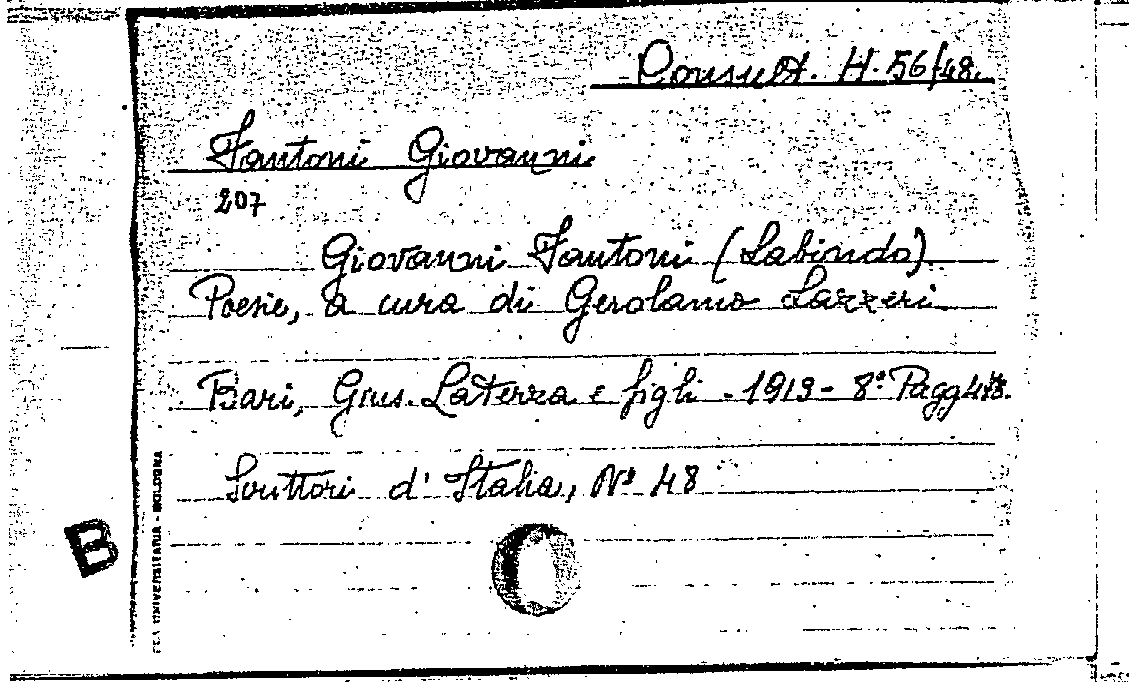 Consult. H.56/48.
Fantoni Giovanni
207
Giovanni Fantoni (Labindo)
Poesie, a cura di Gerolamo Lazzeri
Bari, Gius. Laterza e figli - 1913 - 8º Pagg
Scrittori d'Italia, Nº 48
B
UNIVERSITARIA - BOLOGNA